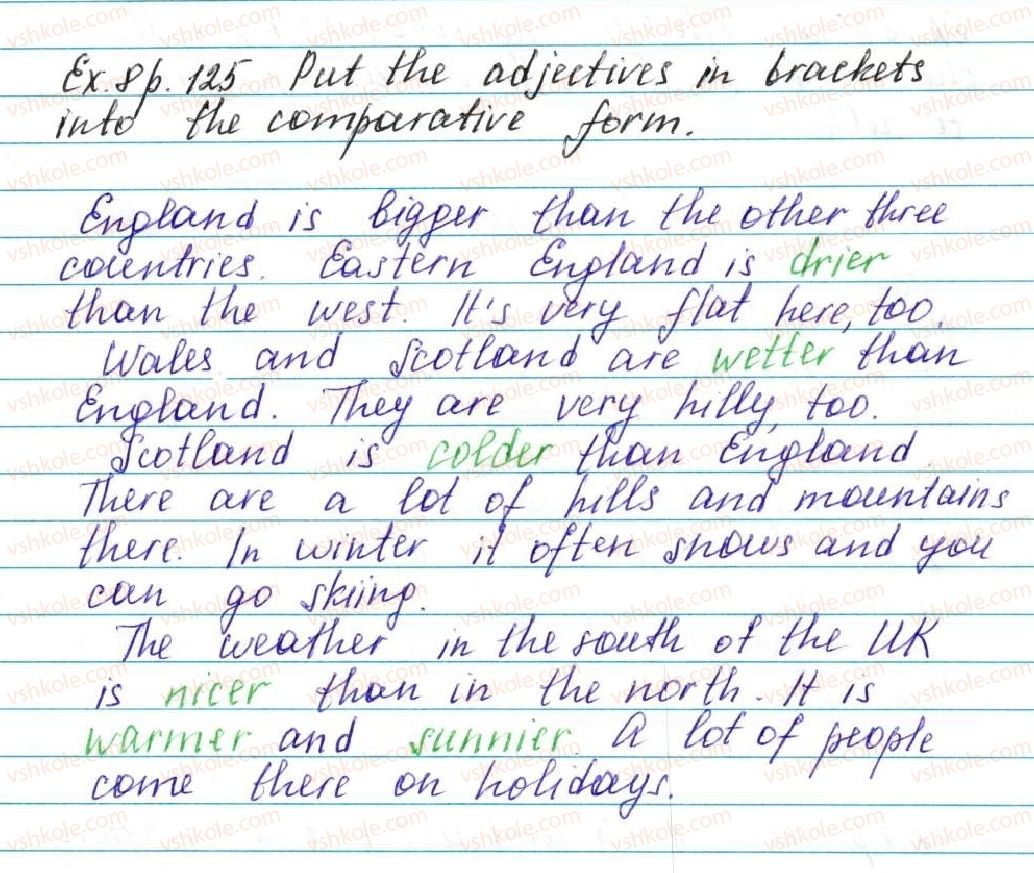 Ex. 8 p. 125 Put the adjectives in brackets
into the comparative form.
England is bigger than the other three
countries. Eastern England is drier
than the west. It's very flat here, too.
Wales and Scotland are wetter than
England. They are very hilly, too.
Scotland is colder than England.
There are a lot of hills and mountains
there. In winter it often snows and you
can go skiing.
The weather in the south of the UK
is nicer than in the north. It is
warmer and sunnier. A lot of people
come there on holidays.
vshkole.com